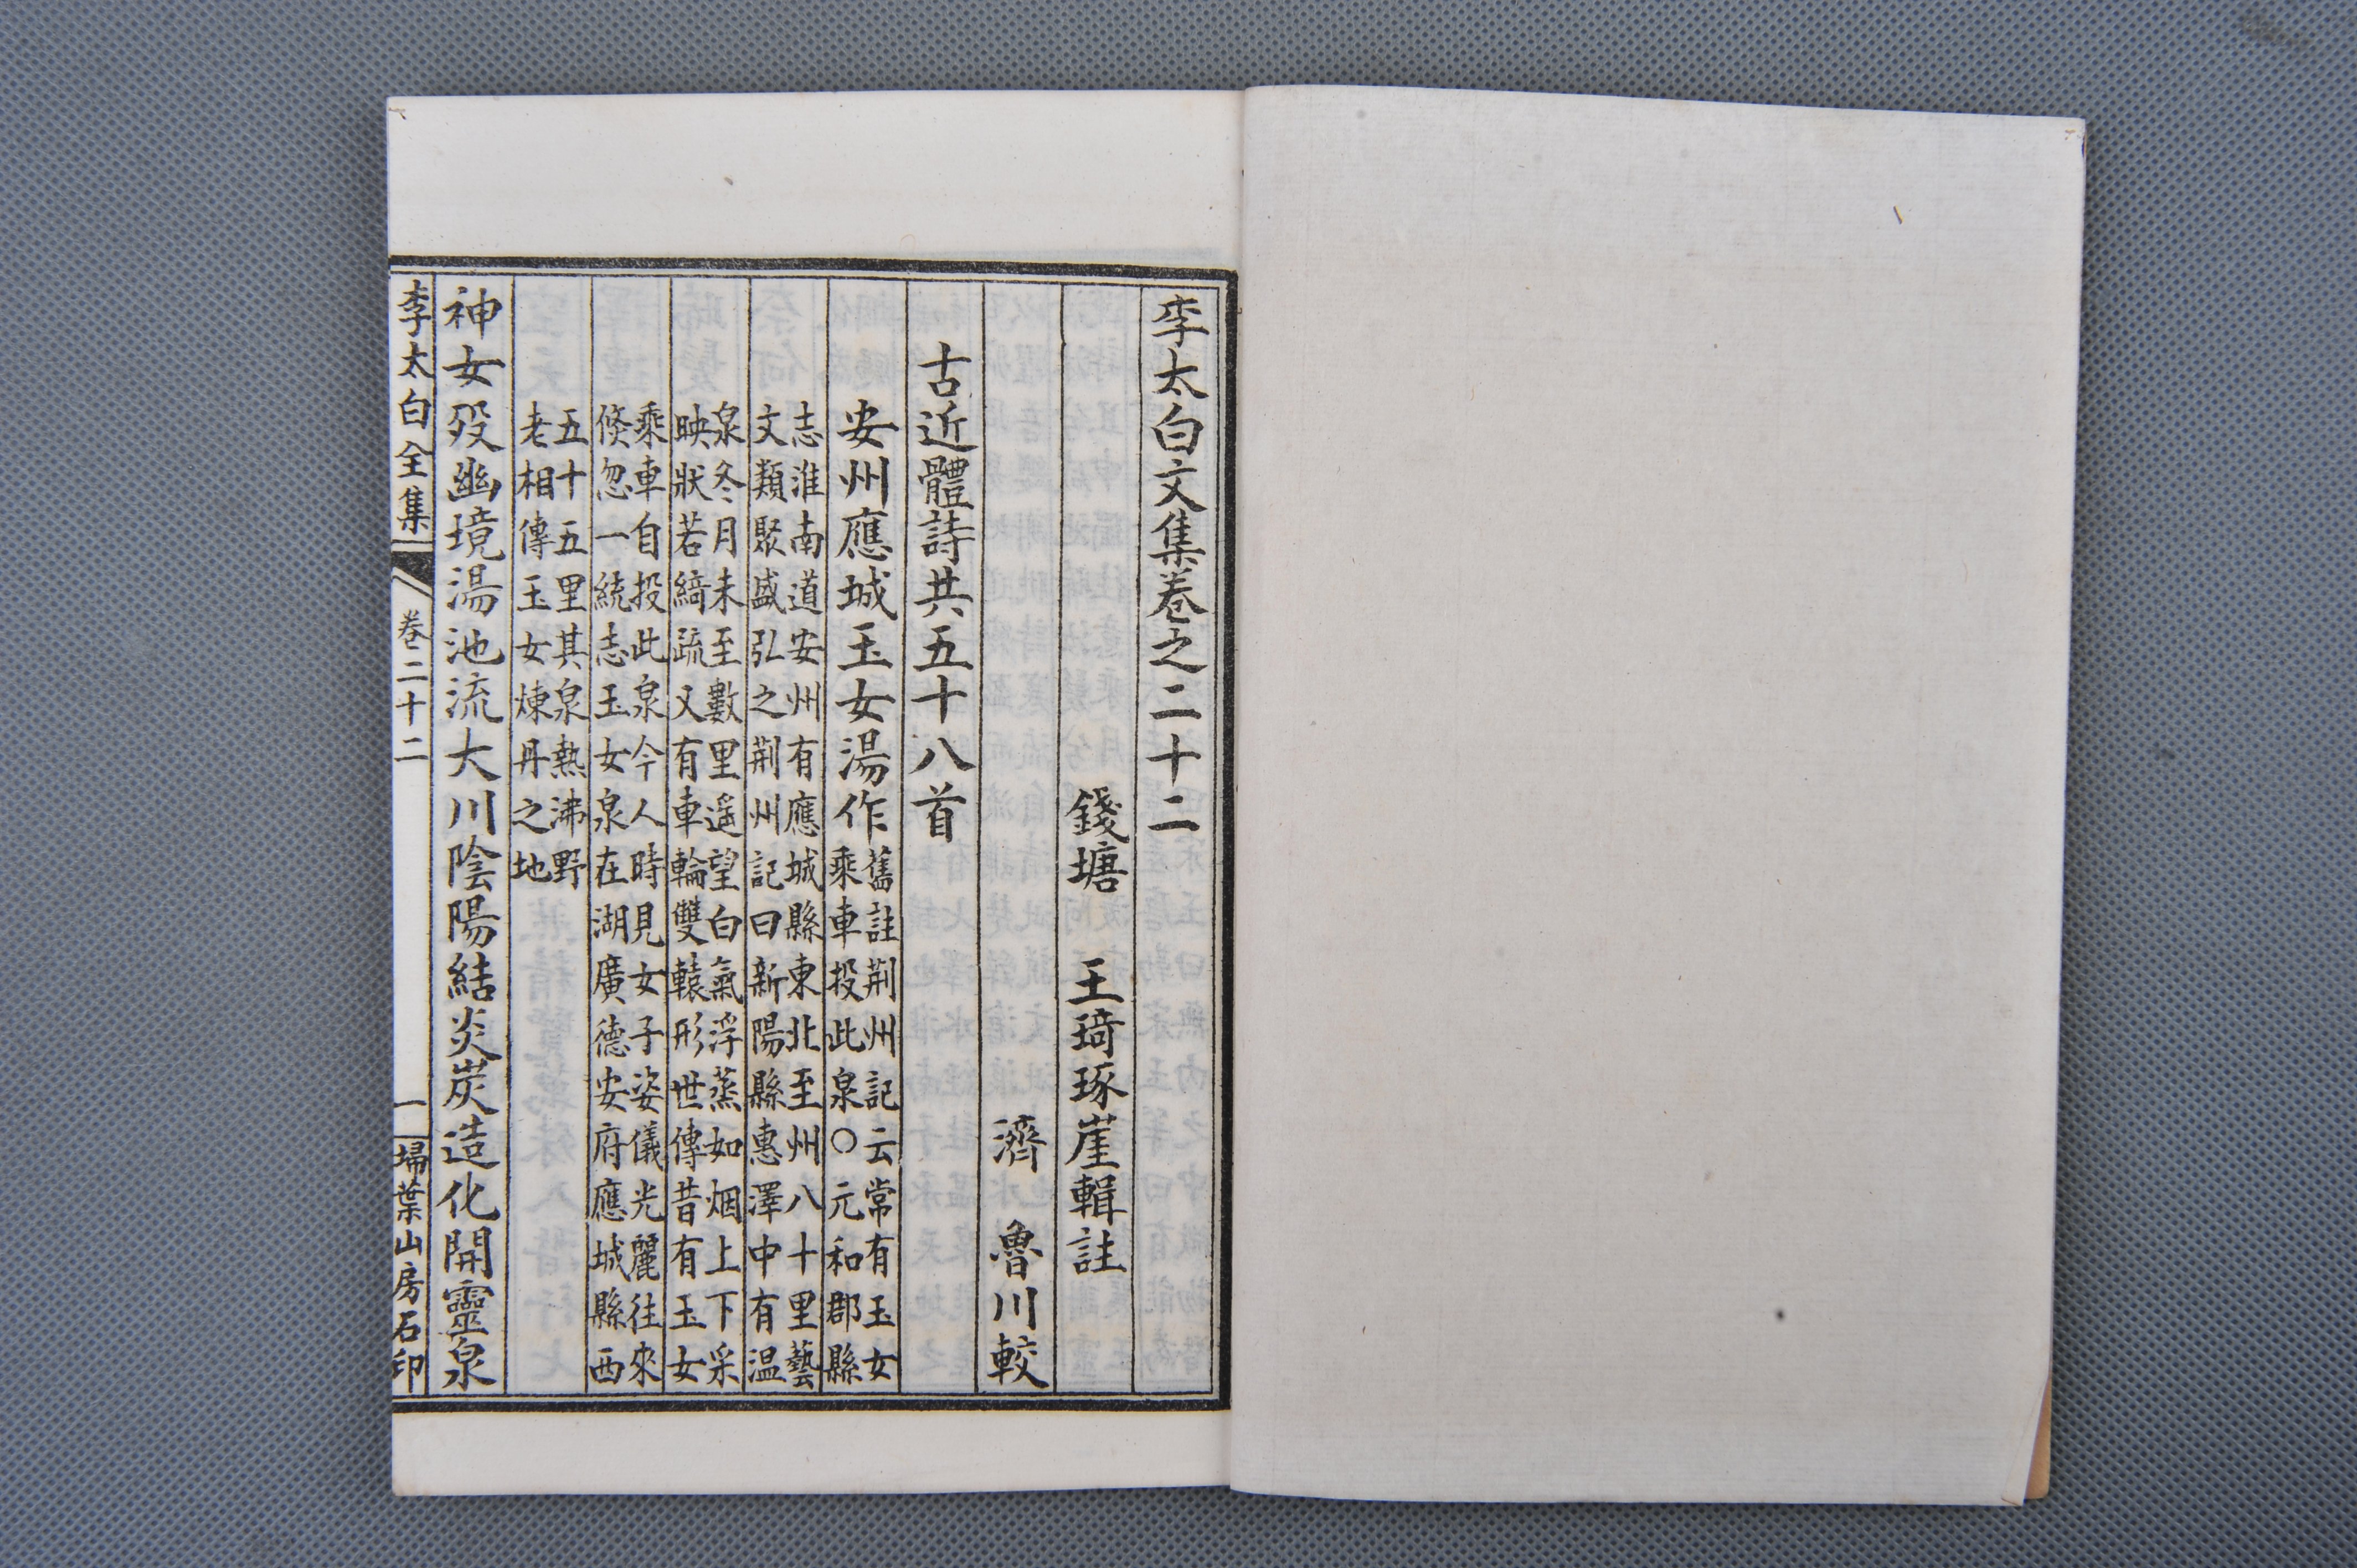 李太白文集卷之二十二
錢塘 王琦琢崖輯註
濟 魯川較
古近體詩共五十八首
安州應城玉女湯作
舊註荆州記云常有玉女
乘車投此泉〇元和郡縣
志淮南道安州有應城縣東北至州八十里藝
文類聚盛弘之荆州記曰新陽縣惠澤中有温
泉冬月未至數里遥望白氣浮蒸如烟上下采
映狀若綺疏又有車輪雙轅形世傳昔有玉女
乘車自投此泉今人時見女子姿儀光麗往來
倐忽一統志玉女泉在湖廣德安府應城縣西
五十五里其泉熱沸野
老相傳玉女煉丹之地
神女歿幽境湯池流大川陰陽結炎炭造化開靈泉
李太白全集 卷二十二 一 埽葉山房石印